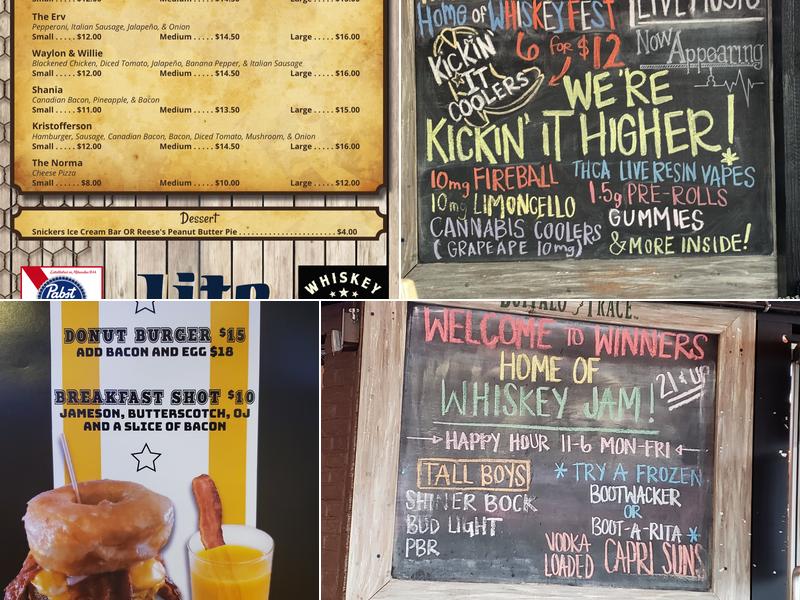 The Erv
Pepperoni, Italian Sausage, Jalapeño, & Onion
Small . . . . . $12.00 Medium . . . . . $14.50 Large . . . . $16.00
Waylon & Willie
Blackened Chicken, Diced Tomato, Jalapeño, Banana Pepper, & Italian Sausage
Small . . . . . $12.00 Medium . . . . . $14.50 Large . . . . $16.00
Shania
Canadian Bacon, Pineapple, & Bacon
Small . . . . . $11.00 Medium . . . . . $13.50 Large . . . . $15.00
Kristofferson
Hamburger, Sausage, Canadian Bacon, Bacon, Diced Tomato, Mushroom, & Onion
Small . . . . . $12.00 Medium . . . . . $14.50 Large . . . . $16.00
The Norma
Cheese Pizza
Small . . . . . $8.00 Medium . . . . . $10.00 Large . . . . $12.00
Dessert
Snickers Ice Cream Bar OR Reese's Peanut Butter Pie . . . . . . . . . . $4.00
Established in Milwaukee 1844
Pabst
lite
WHISKEY
HOME OF WHISKEY FEST
LIVE MUSIC
KICKIN' IT COOLERS
6 FOR $12
Now Appearing
WE'RE
KICKIN' IT HIGHER!
10mg FIREBALL
10mg LIMONCELLO
CANNABIS COOLERS
(GRAPEAPE 10mg)
THCA LIVE RESIN VAPES
1.5g PRE-ROLLS
GUMMIES
& MORE INSIDE!
DONUT BURGER $15
ADD BACON AND EGG $18
BREAKFAST SHOT $10
JAMESON, BUTTERSCOTCH, OJ
AND A SLICE OF BACON
BUFFALO TRACE
WELCOME TO WINNERS
HOME OF
WHISKEY JAM!
21 & UP
HAPPY HOUR 11-6 MON-FRI
TALL BOYS
SHINER BOCK
BUD LIGHT
PBR
* TRY A FROZEN
BOOTWACKER
OR
BOOT-A-RITA *
VODKA LOADED CAPRI SUNS